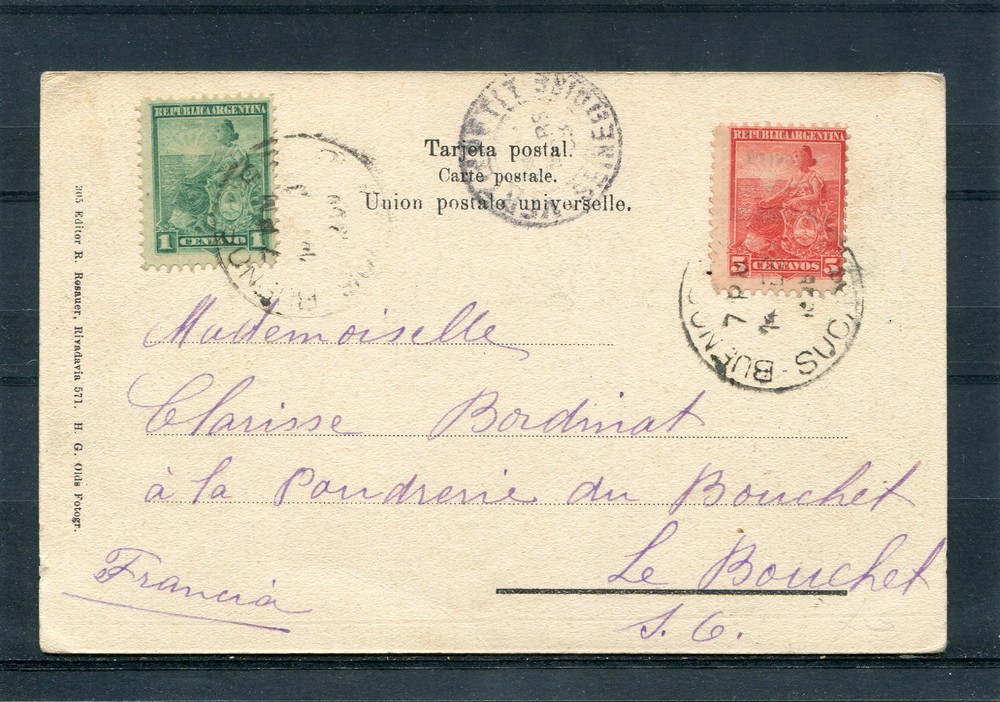 REPUBLICA ARGENTINA
1 CENTAVO 1
REPUBLICA ARGENTINA
5 CENTAVOS 5
BUENOS
Tarjeta postal.
Carte postale.
Union postale universelle.
Mademoiselle
Clarisse Bordinat
à la Poudrerie du Bouchet
Le Bouchet
S. O.
Francia
305 Editor R. Rosauer, Rivadavia 571. H. G. Olds Fotogr.